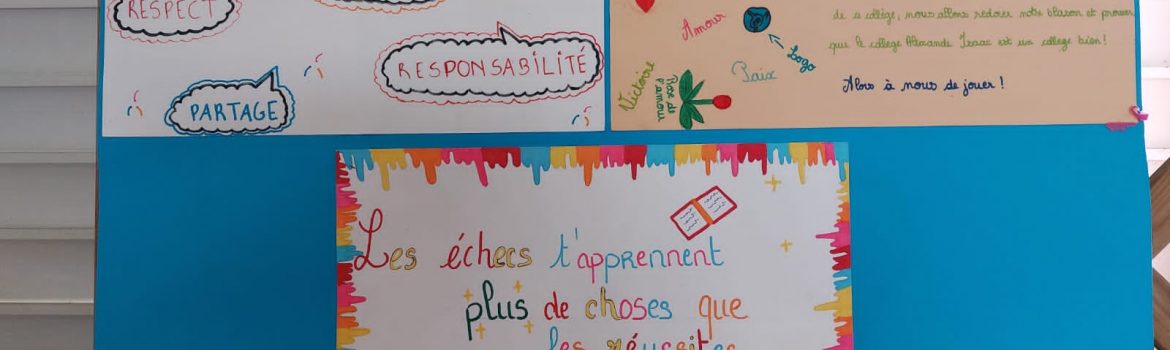 RESPECT
RESPONSABILITÉ
PARTAGE
Amour
Logo
Paix
Victoire
Rose de
l'amour
de ce collège, nous allons redorer notre blason et prouver
que le collège Isaac est un collège bien!
Alors à nous de jouer!
Les échecs t'apprennent
plus de choses que
les réussites